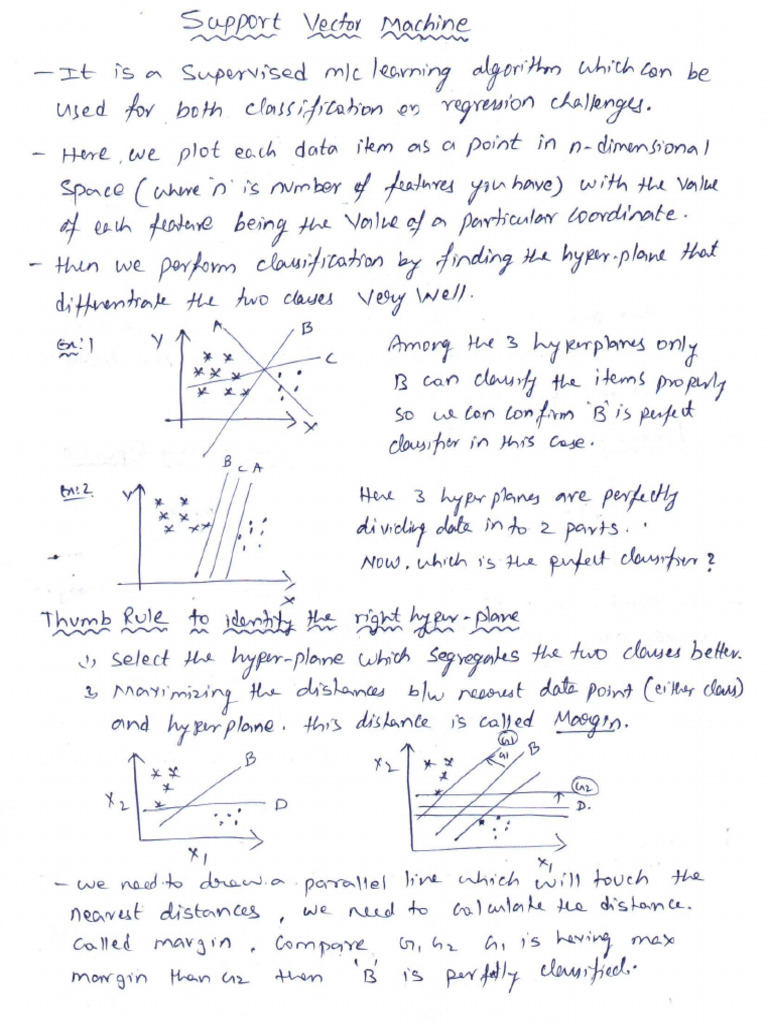 Support Vector Machine
- It is a Supervised m/c learning algorithm which can be
used for both classification or regression challenges.
- Here, we plot each data item as a point in n-dimensional
Space (where 'n' is number of features you have) with the value
of each feature being the value of a particular coordinate.
- then we perform classification by finding the hyper-plane that
differentiate the two classes very well.
Ex:1
Y A B C X
Among the 3 hyperplanes only
B can classify the items properly
so we can confirm 'B' is perfect
classifier in this case.
Ex:2
Y B C A X
Here 3 hyperplanes are perfectly
dividing data in to 2 parts.
Now, which is the perfect classifier?
Thumb Rule to identify the right hyper-plane
1) select the hyper-plane which segregates the two classes better.
2) Maximizing the distances b/w nearest data point (either class)
and hyperplane. this distance is called Margin.
X2 B D X1
X2 G1 G1 B G2 D. X1
- we need to draw a parallel line which will touch the
nearest distances, we need to calculate the distance.
called margin. Compare G1, G2 G1 is having max
margin than G2 then 'B' is perfectly classified.